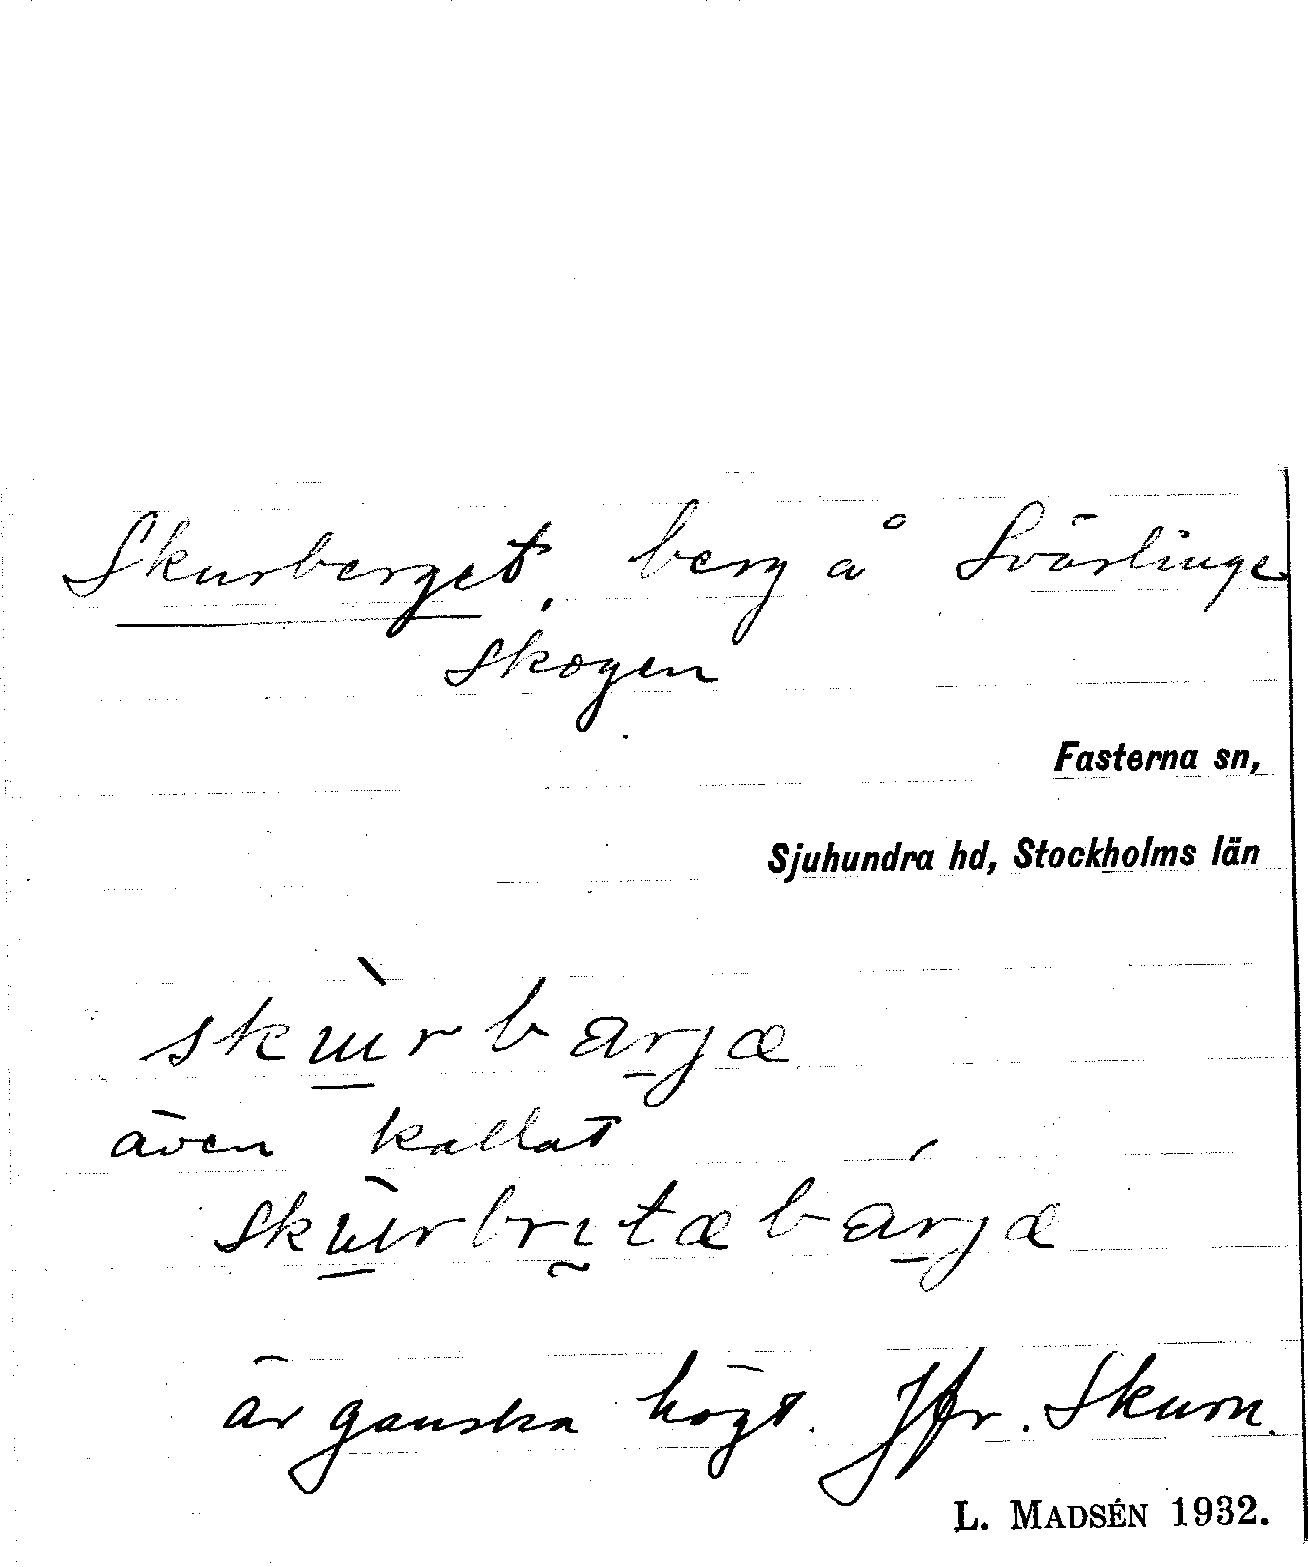 Skurberget, berg å Svärlinge
skogen
Fasterna sn,
Sjuhundra hd, Stockholms län
skɯ̀rbarjæ
även kallat
skɯ̀rbrɪtæbárjæ
är ganska högt. Jfr. Skurn.
L. MADSÉN 1932.